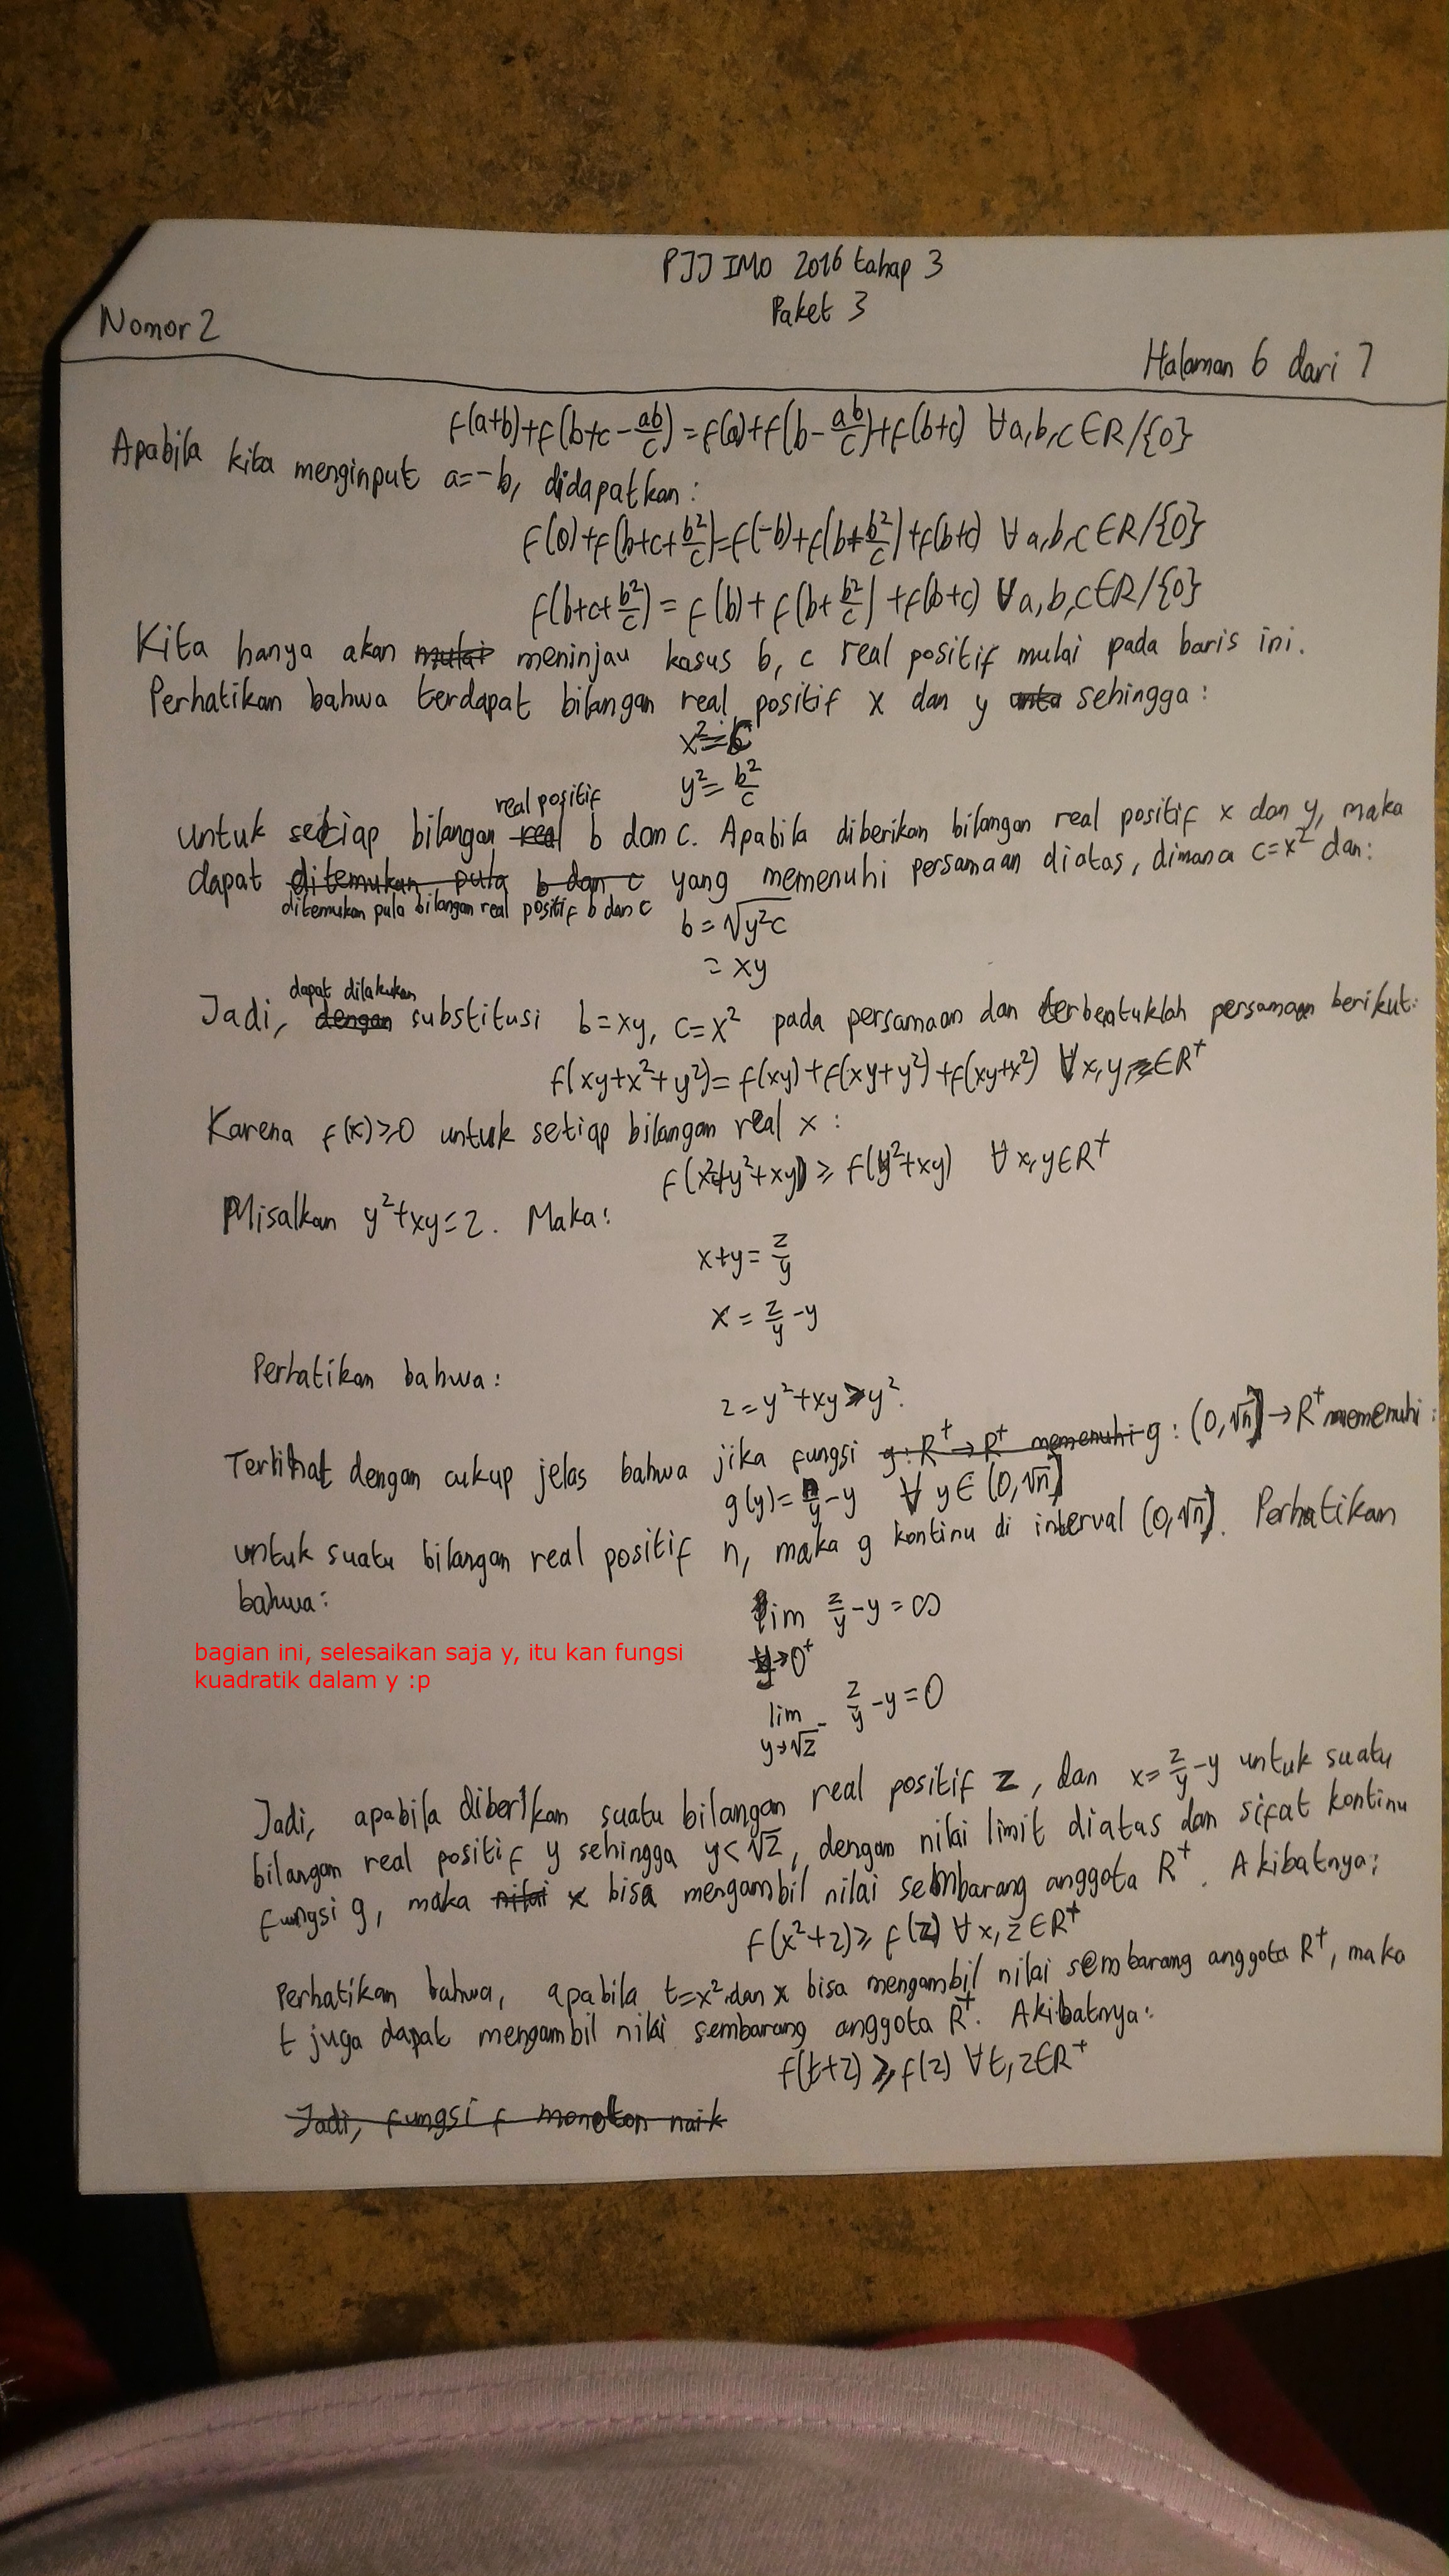 PJJ IMO 2016 tahap 3
Paket 3
Nomor 2
Halaman 6 dari 7
f(a+b)+f(b+c-\frac{ab}{c})=f(a)+f(b-\frac{ab}{c})+f(b+c) ∀a,b,c∈R/{0}
Apabila kita menginput a=-b, didapatkan:
f(0)+f(b+c+\frac{b²}{c})=f(-b)+f(b+\frac{b²}{c})+f(b+c) ∀a,b,c∈R/{0}
f(b+c+\frac{b²}{c})=f(b)+f(b+\frac{b²}{c})+f(b+c) ∀a,b,c∈R/{0}
Kita hanya akan mulai meninjau kasus b, c real positif mulai pada baris ini.
Perhatikan bahwa terdapat bilangan real positif x dan y sehingga:
x²=c
y²=\frac{b²}{c}
untuk setiap bilangan real real positif b dan c. Apabila diberikan bilangan real positif x dan y, maka
dapat ditemukan pula b dan c ditemukan pula bilangan real positif b dan c yang memenuhi persamaan diatas, dimana c=x² dan:
b=√(y²c)
=xy
Jadi, dengan dapat dilakukan substitusi b=xy, c=x² pada persamaan dan terbentuklah persamaan berikut:
f(xy+x²+y²)=f(xy)+f(xy+y²)+f(xy+x²) ∀x,y∈R⁺
Karena f(x)≥0 untuk setiap bilangan real x:
f(x²+y²+xy)≥f(y²+xy) ∀x,y∈R⁺
Misalkan y²+xy=z. Maka:
x+y=\frac{z}{y}
x=\frac{z}{y}-y
Perhatikan bahwa:
z=y²+xy>y².
Terlihat dengan cukup jelas bahwa jika fungsi g:R⁺→R⁺ memenuhi g:(0,√n]→R⁺ memenuhi:
g(y)=\frac{n}{y}-y ∀y∈(0,√n]
untuk suatu bilangan real positif n, maka g kontinu di interval (0,√n]. Perhatikan
bahwa:
lim_{y→0⁺} \frac{z}{y}-y=∞
bagian ini, selesaikan saja y, itu kan fungsi
kuadratik dalam y :p
lim_{y→√z⁻} \frac{z}{y}-y=0
Jadi, apabila diberikan suatu bilangan real positif z, dan x=\frac{z}{y}-y untuk suatu
bilangan real positif y sehingga y<√z, dengan nilai limit diatas dan sifat kontinu
fungsi g, maka nilai x bisa mengambil nilai sembarang anggota R⁺. Akibatnya:
f(x²+z)≥f(z) ∀x,z∈R⁺
Perhatikan bahwa, apabila t=x² dan x bisa mengambil nilai sembarang anggota R⁺, maka
t juga dapat mengambil nilai sembarang anggota R⁺. Akibatnya:
f(t+z)≥f(z) ∀t,z∈R⁺
Jadi, fungsi f monoton naik